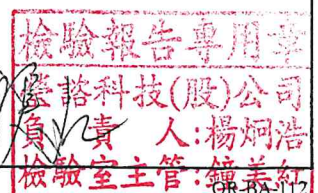 檢驗報告專用章
瑩諮科技(股)公司
負責人:楊炯浩
檢驗室主管:鐘美紅
QR-BA-117